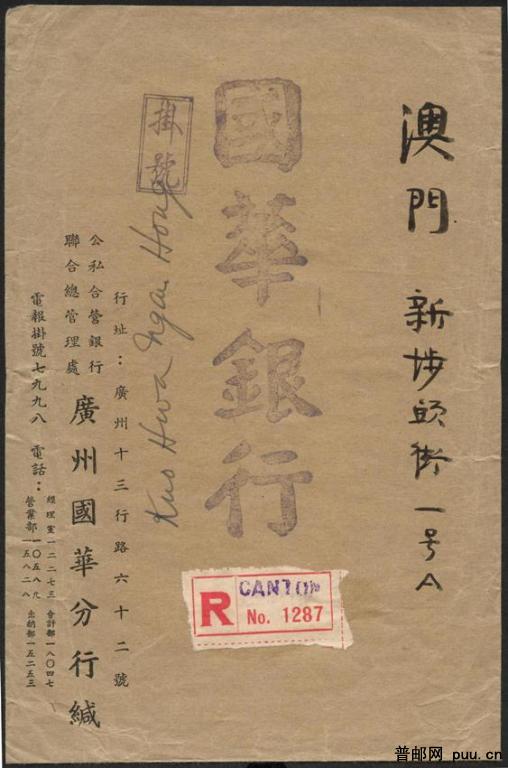 澳門 新埗頭街一号A
國華銀行
掛號
Kuo Hwa Ngan Hong
行址：廣州十三行路六十二號
公私合營銀行
聯合總管理處
廣州國華分行緘
電報掛號七九九八 電話：
經理室一二二七三 會計部一八〇四七
營業部一〇五八九
一五八二八 出納部一五二五三
R CANTON
No. 1287
普邮网 puu.cn